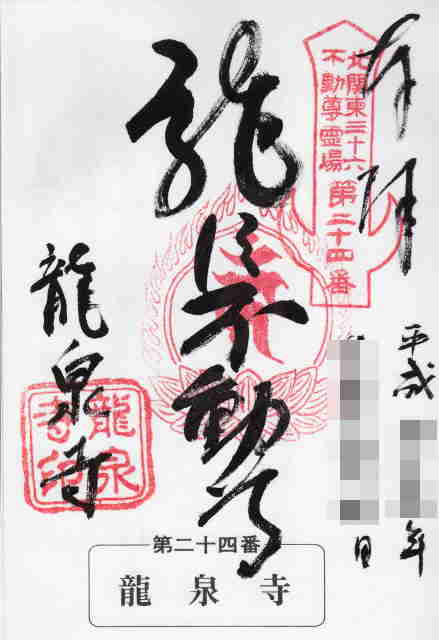 奉拝
北関東三十六
不動尊霊場
第二十四番
平成
年
日
不動尊
龍泉寺
龍泉
寺印
第二十四番
龍泉寺